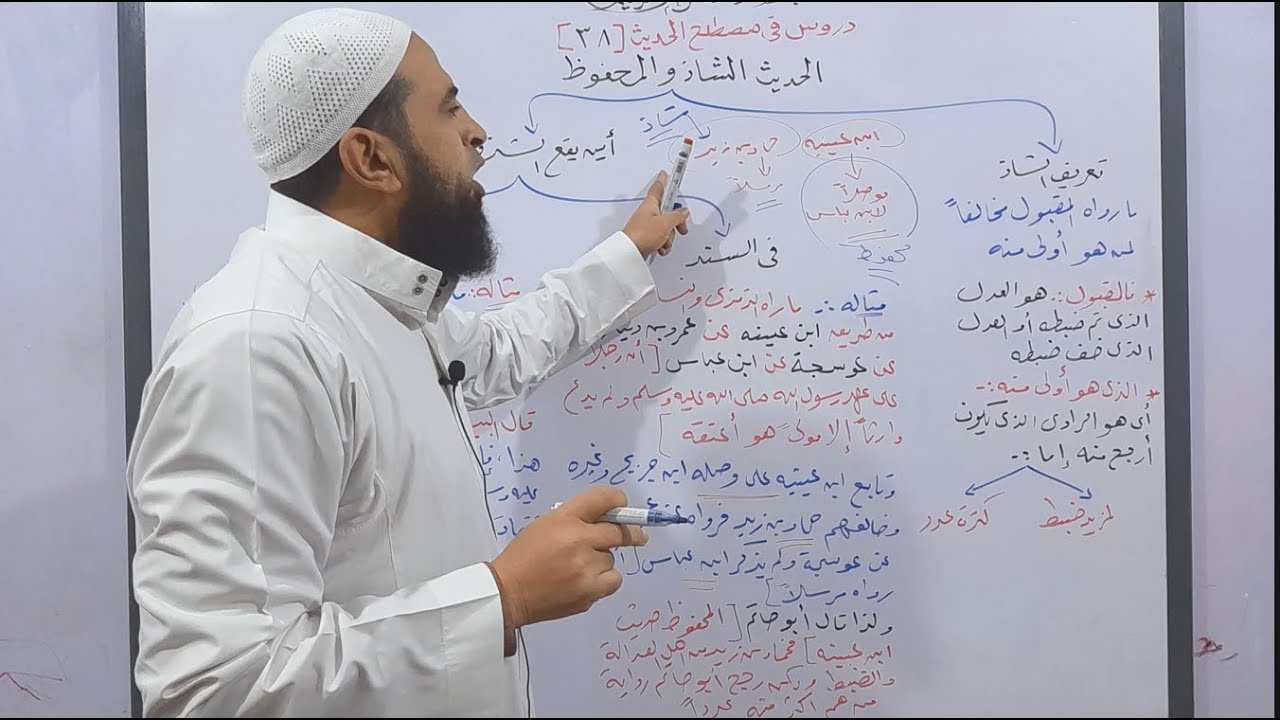 دروس في مصطلح الحديث [٣٨]
الحديث الشاذ والمحفوظ
تعريف الشاذ
ما رواه المقبول مخالفاً
لمن هو أولى منه
* فالمقبول:- هو العدل
الذي تم ضبطه أو العدل
الذي خف ضبطه
* الذي هو أولى منه:-
أي هو الراوي الذي يكون
أرجح منه إما:-
لمزيد ضبط
كثرة عدد
ابن عيينه
موصلاً
لابن عباس
محفوظ
حماد بن زيد
مرسلاً
شاذ
أين يقع الشذ
في السند
مثاله:- ما رواه الترمذي والنسا
من طريق ابن عيينه عن عمرو بن دينا
عن عوسجة عن ابن عباس [أن رجلاً
على عهد رسول الله صلى الله عليه وسلم ولم يدع
وارثاً إلا مولىً هو أعتقه]
وتابع ابن عيينه على وصله ابن جريج وغيره
وخالفهم حماد بن زيد فرواه عن
عن عوسجة ولم يذكر ابن عباس [
رواه مرسلاً]
ولذا قال أبو حاتم [المحفوظ حديث
ابن عيينه] فحماد بن زيد من أهل العدالة
والضبط ولكن رجح أبو حاتم رواية
من هم أكثر منه عدداً
مثاله:-
قال البي
هذا، فإ
عليه وس